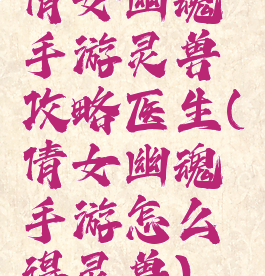 倩女幽魂
手游灵兽
攻略医生(
倩女幽魂
手游怎么
得灵兽)